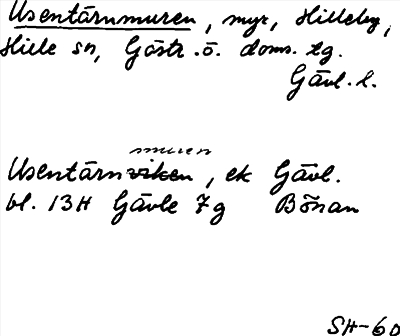 Usentärnmuren, myr, Hilleby,
Hille sn, Gästr. ö. doms. tg.
Gävl. l.
muren
Usentärnviken, ek Gävl.
bl. 13H Gävle 7g Bönan
SH-60